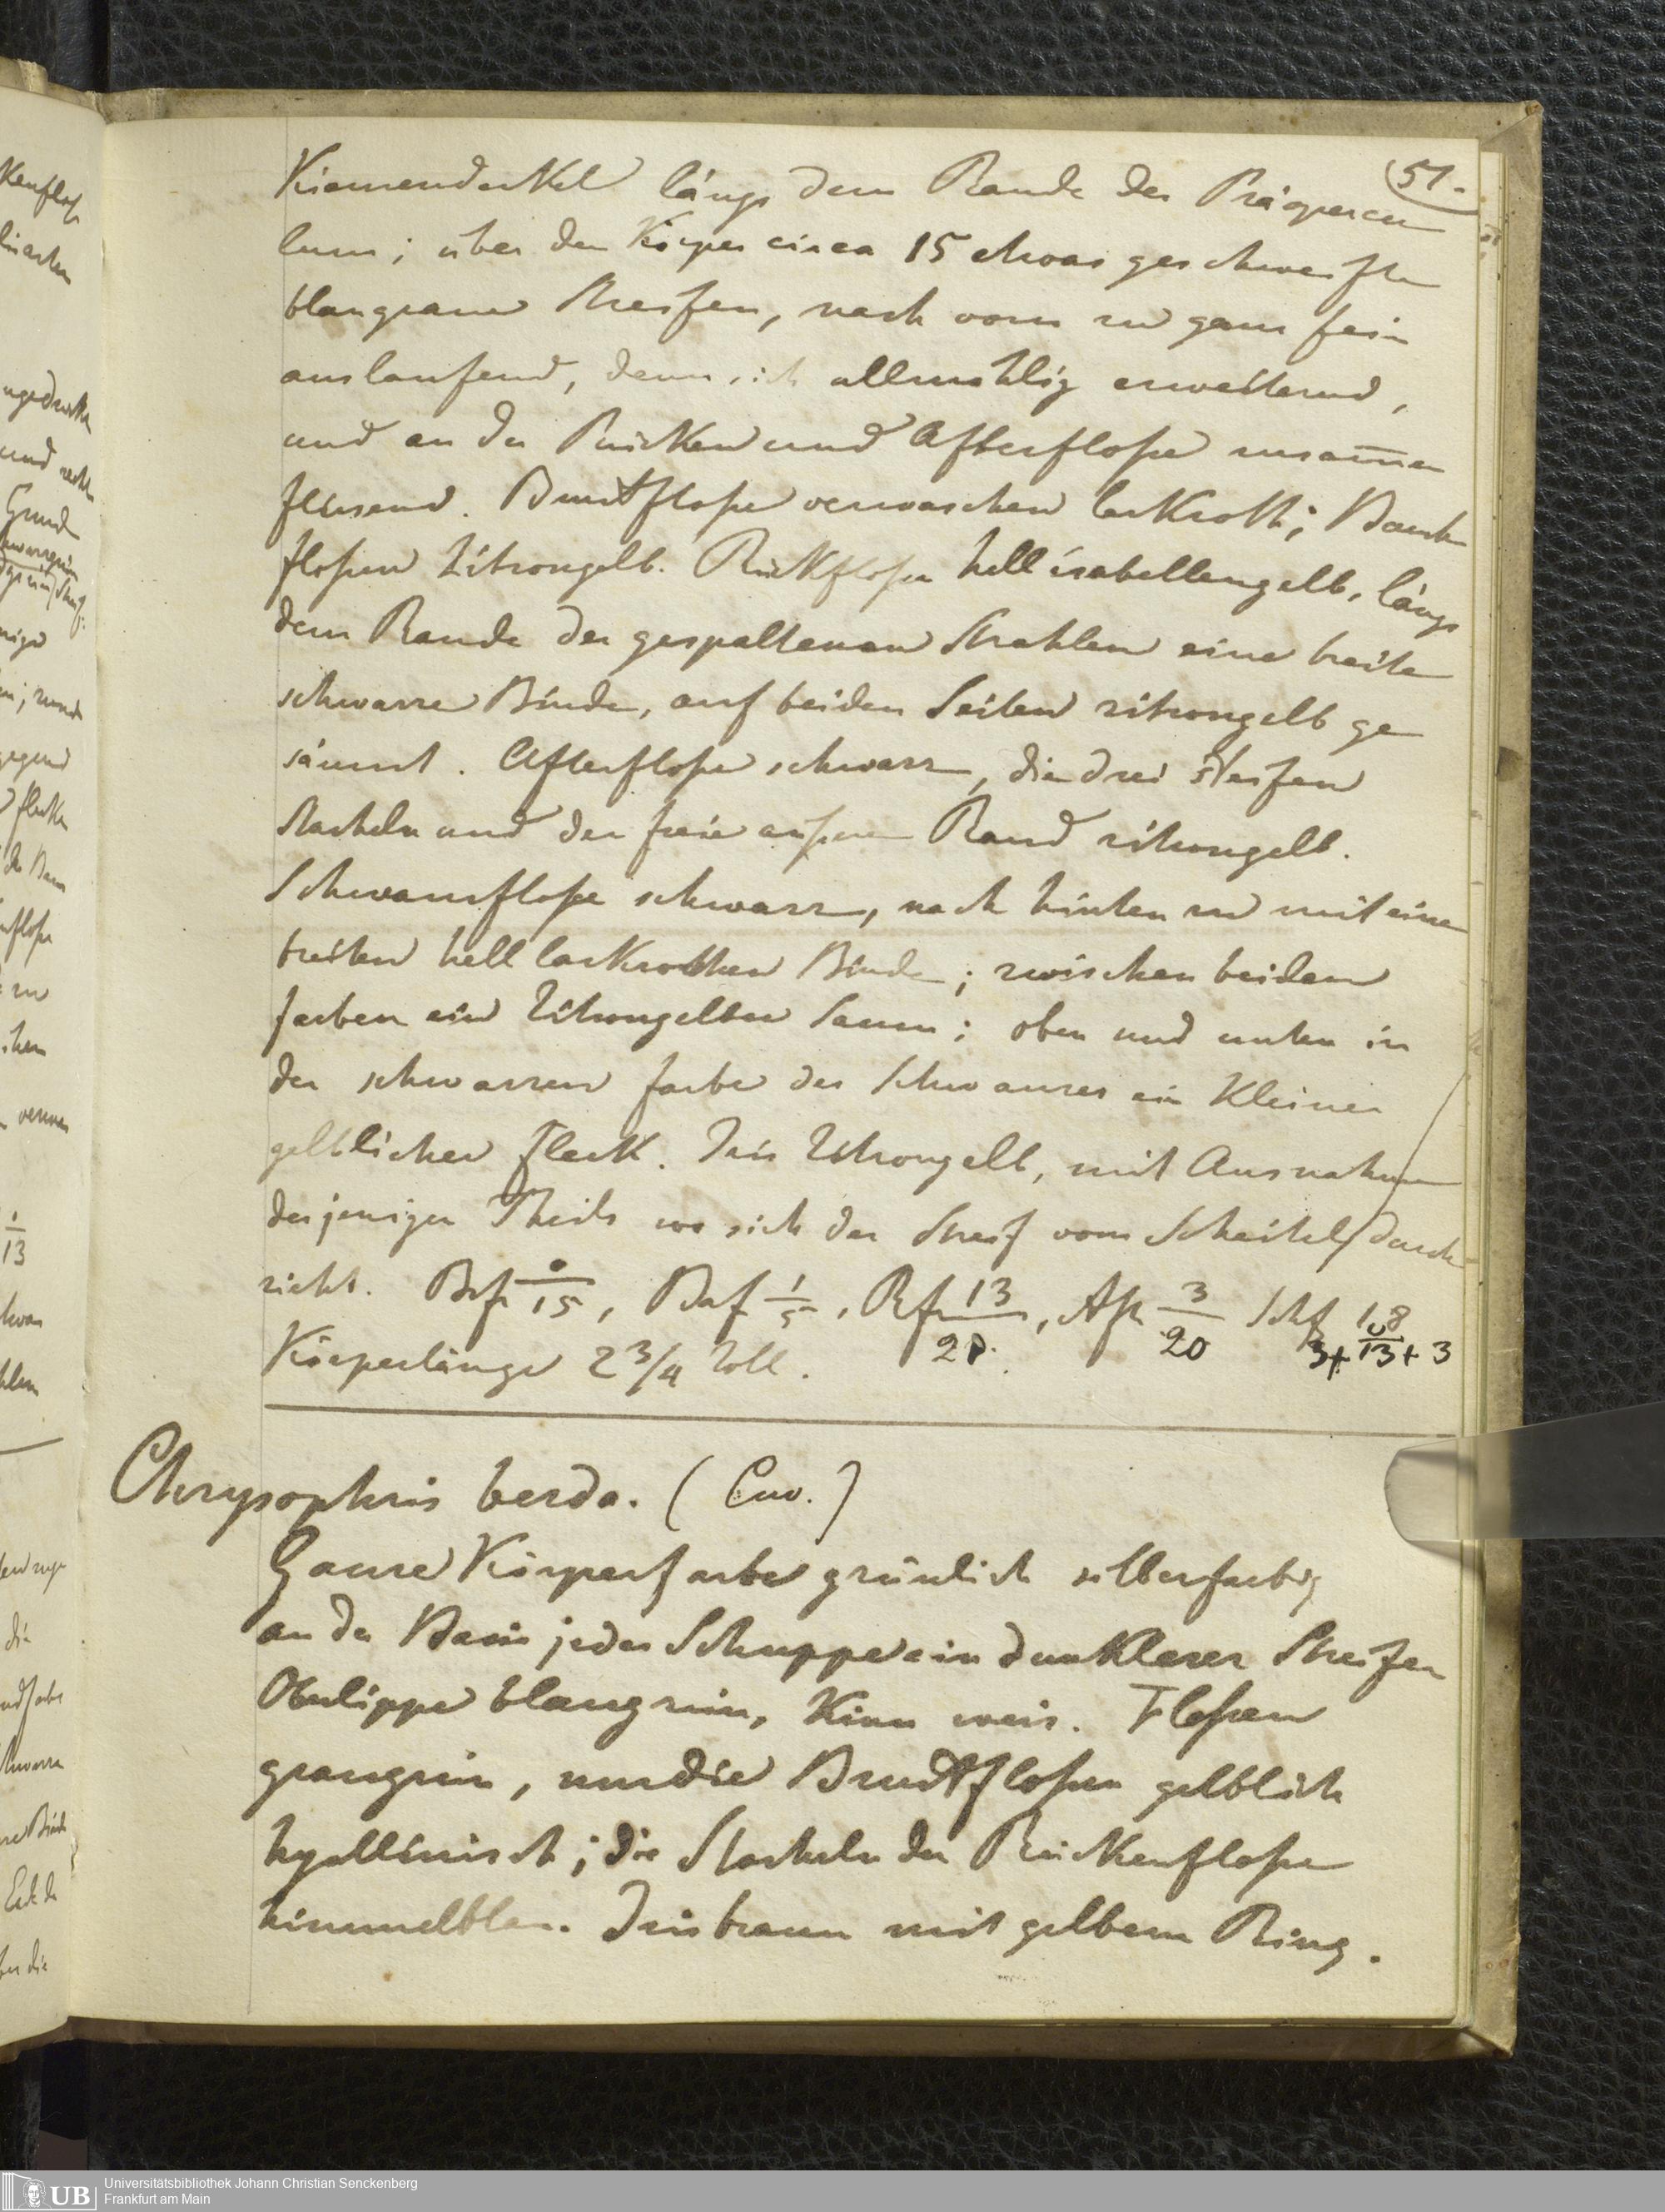 51.
Kiemendeckel längs dem Rande des Präopercu
lum; über den Körper circa 15 etwas geschweifte
blaugraue Streifen, nach vorn zu ganz fein
auslaufend, dann sich allmählig erweiternd,
und an der Rücken und Afterfloße zusam̄en
fliesend. Brustfloße verwaschen lackroth; Bauch
floßen Zitrongelb. Rückfloße hell isabellengelb, längs
dem Rande der gespaltenen Strahlen eine breite
schwarze Binde, auf beiden Seiten zitrongelb ge
säumt. Afterfloße schwarz, die drei steifen
Stacheln und der freie äußere Rand zitrongelb.
Schwanzfloße schwarz, nach hinten zu mit einer
breiten hell lackrothen Binde; zwischen beiden
farben ein Zitrongelber Saum; oben und unten in
der schwarzen farbe des Schwanzes ein kleiner
gelblicher Fleck. Iris Zitrongelb, mit Ausnahme
desjenigen Theils wo sich der Streif vom Scheitel durch
zieht. Brf 0/15, Baf 1/5, Rf 13/21, Afl 3/20 Schf
3+ 13+ 3
Körperlänge 2 3/4 Zoll.
Chrysophris berda. (Cuv.)
Ganze Körperfarbe grünlich silberfarbig
an der Basis jeder Schuppe ein dunklerer Streifen
Oberlippe blaugrün, Kinn weis. Floßen
graugrün, nur die Brustfloßen gelblich
hyallinisch; die Stacheln der Rückenfloße
himmelblau. Iris braun mit gelbem Ring.
Universitätsbibliothek Johann Christian Senckenberg
Frankfurt am Main
UB